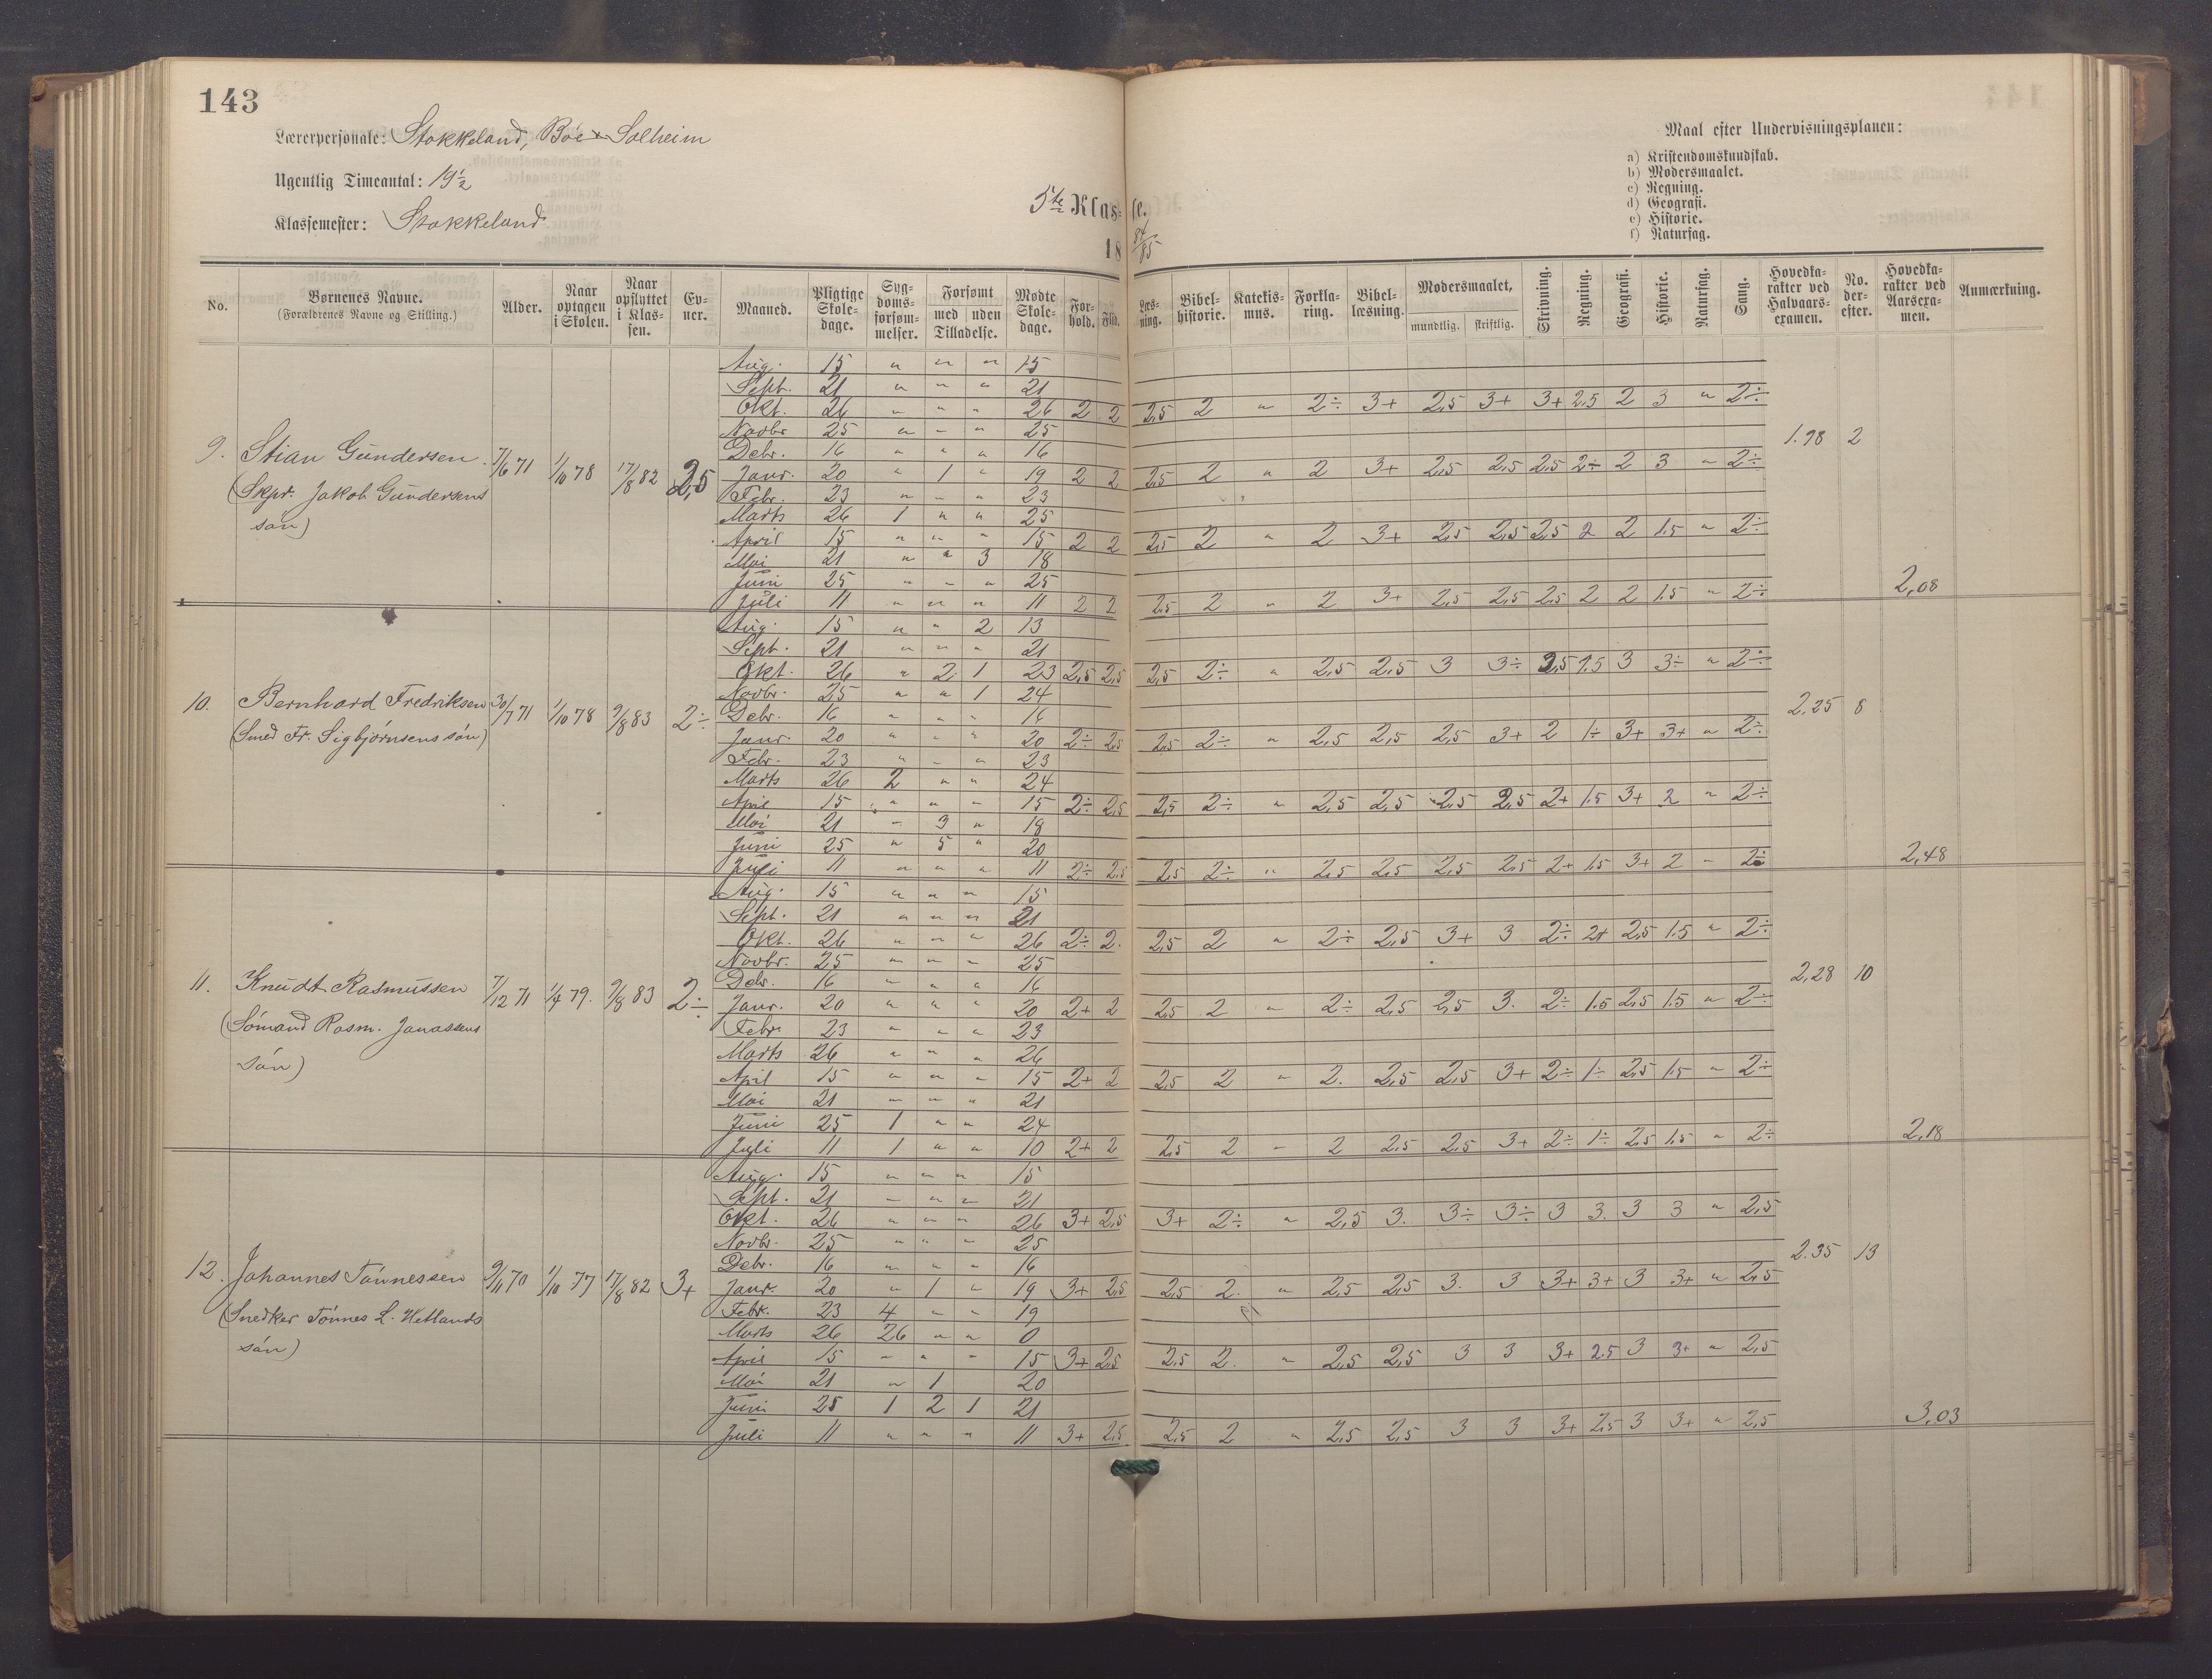 143
Lærerpersonale: Stokkeland, Böe & Solheim
Ugentlig Timeantal: 19 1/2
Klassemester: Stokkeland
Maal efter Undervisningsplanen:
a) Kristendomskundskab.
b) Modersmaalet.
c) Regning.
d) Geografi.
e) Historie.
f) Naturfag.
5te Klasse.
18 84/85
No. | Børnenes Navne. (Forældrenes Navne og Stilling.) | Alder. | Naar optagen i Skolen. | Naar opflyttet i Klassen. | Evner. | Maaned. | Pligtige Skoledage. | Sygdomsforsømmelser. | Forsømt med uden Tilladelse. | Mødte Skoledage. | Forhold. | Flid. | Læsning. | Bibelhistorie. | Katekismus. | Forklaring. | Bibellæsning. | Modersmaalet, mundtlig. skriftlig. | Skrivning. | Regning. | Geografi. | Historie. | Naturfag. | Sang. | Hovedkarakter ved Halvaarsexamen. | No. derefter. | Hovedkarakter ved Aarsexamen. | Anmærkning.
Aug. 15 " " " 15
Sept. 21 " " " 21
Okt. 26 " " " 26 2 2 2,5 2 " 2÷ 3+ 2,5 3+ 3+ 2.5 2 3 " 2÷
Novbr 25 " " " 25
9. Stian Gundersen. 7/6 71 1/10 78 17/8 82 2,5 1.98 2
(Skpr. Jakob Gundersens
sön)
Debr. 16 " " " 16
Janr. 20 " 1 " 19 2 2 2,5 2 " 2 3+ 2,5 2,5 2,5 2÷ 2 3 " 2÷
Febr. 23 " " " 23
Marts 26 1 " " 25
April 15 " " " 15 2 2 2,5 2 " 2 3+ 2,5 2,5 2,5 2 2 1.5 " 2÷
Mai 21 " " 3 18
Juni 25 " " " 25
Juli 11 " " " 11 2 2 2,5 2 " 2 3+ 2,5 2,5 2,5 2 2 1.5 " 2÷ 2,08
Aug. 15 " " 2 13
Sept. 21 " " " 21
Okt. 26 " 2 1 23 2,5 2,5 2,5 2÷ " 2,5 2,5 3 3÷ 2,5 1.5 3 3÷ " 2÷
Novbr. 25 " " 1 24
10. Bernhard Fredriksen 30/7 71 1/10 78 9/8 83 2÷ 2,25 8
(Smed Fr. Sigbjörnsens sön)
Debr. 16 " " " 16
Janr. 20 " " " 20 2÷ 2,5 2,5 2÷ " 2,5 2,5 2,5 3+ 2 1÷ 3+ 3+ " 2÷
Febr. 23 " " " 23
Marts 26 2 " " 24
April 15 " " " 15 2÷ 2,5 2,5 2÷ " 2,5 2,5 2,5 2,5 2+ 1.5 3+ 2 " 2÷
Mai 21 " 3 " 18
Juni 25 " 5 " 20
Juli 11 " " " 11 2÷ 2,5 2,5 2÷ " 2,5 2,5 2,5 2,5 2+ 1.5 3+ 2 " 2÷ 2,48
Aug. 15 " " " 15
Sept. 21 " " " 21
Okt. 26 " " " 26 2÷ 2. 2,5 2 " 2÷ 2,5 3+ 3 2÷ 2+ 2,5 1.5 " 2÷
Novbr. 25 " " " 25
11. Knudt Rasmussen 7/12 71 1/4 79. 9/8 83 2÷ 2,28 10
(Sömand Rasm. Jonassens
sön)
Debr. 16 " " " 16
Janr. 20 " " " 20 2+ 2 2,5 2 " 2÷ 2,5 2,5 3. 2÷ 1.5 2,5 1.5 " 2÷
Febr. 23 " " " 23
Marts 26 " " " 26
April 15 " " " 15 2+ 2 2,5 2 " 2. 2,5 2,5 3+ 2÷ 1÷ 2,5 1.5 " 2÷
Mai 21 " " " 21
Juni 25 1 " " 24
Juli 11 1 " " 10 2+ 2 2,5 2 " 2 2,5 2,5 3+ 2÷ 1÷ 2,5 1.5 " 2÷ 2,18
Aug. 15 " " " 15
Sept. 21 " " " 21
Okt. 26 " " " 26 3+ 2,5 3+ 2÷ " 2,5 3. 3÷ 3÷ 3 3. 3 3 " 2,5
Novbr. 25 " " " 25
12. Johannes Tönnessen 9/11 70 1/10 77 17/8 82 3+ 2.35 13
(Snedker Tönnes L. Hetlands
sön)
Debr. 16 " " " 16
Janr. 20 " 1 " 19 3+ 2,5 2,5 2. " 2,5 2,5 3. 3 3+ 3+ 3 3+ " 2,5
Febr. 23 4 " " 19
Marts 26 26 " " 0
April 15 " " " 15 3+ 2,5 2,5 2. " 2,5 2,5 3 3 3+ 2.5 3 3+ " 2,5
Mai 21 " 1 20
Juni 25 1 2 1 21
Juli 11 " " " 11 3+ 2,5 2,5 2 " 2,5 2,5 3 3 3+ 2,5 3 3+ " 2,5 3,03